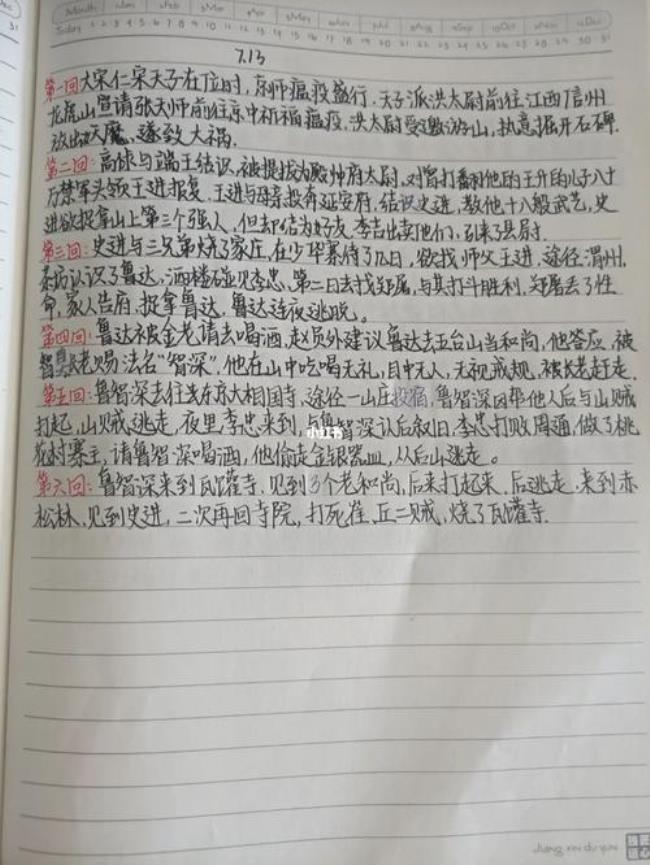 Month Jan Feb Mar Apr May Jun Jul Aug Sep Oct Nov Dec
Today 1 2 3 4 5 6 7 8 9 10 11 12 13 14 15 16 17 18 19 20 21 22 23 24 25 26 27 28 29 30 31
7.13
第一回大宋仁宋天子在位时,京师瘟疫盛行.天子派洪太尉前往江西信州
龙虎山宣请张天师前往京中祈福瘟疫.洪太尉受邀游山,执意掘开石碑.
放出妖魔,遂致大祸.
第二回:高俅与端王结识,被提拔为殿帅府太尉.对曾打翻他的王升的儿子八十
万禁军头领王进报复.王进与母亲投奔延安府.结识史进,教他十八般武艺,史
进欲捉拿山上第三个强人,但却结为好友,李吉出卖他们,引来了县尉.
第三回:史进与三兄弟烧了家庄,在少华寨待了几日,欲找师父王进,途径渭州.
茶坊认识了鲁达,酒楼碰见李忠.第二日去找郑屠,与其打斗胜利,郑屠丢了性
命,家人告府,捉拿鲁达,鲁达连夜逃脱.
第四回:鲁达被金老请去喝酒,赵员外建议鲁达去五台山当和尚,他答应,被
智真长老赐法名“智深”,他在山中吃喝无礼,目中无人,无视戒规,被长老赶走.
第五回:鲁智深去往东京大相国寺,途径一山庄投宿,鲁智深因帮他人后与山贼
打起,山贼逃走,夜里李忠来到,与鲁智深认后叙旧.李忠打败周通,做了桃
花村寨主,请鲁智深喝酒,他偷走金银器皿,从后山逃走。
第六回:鲁智深来到瓦罐寺,见到3个老和尚,后来打起来,后逃走,来到赤
松林,见到史进,二次再回寺院,打死崔、丘二贼,烧了瓦罐寺.
小红书